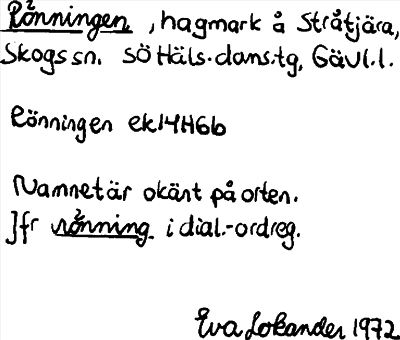 Rönningen, hagmark å Stråtjära,
Skogs sn. SÖ Häls. doms.tg, Gävl.l.
Rönningen ek14H6b
Namnet är okänt på orten.
Jfr rönning i dial.-ordreg.
Eva Lokander 1972